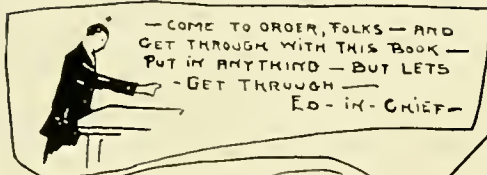 — COME TO ORDER, FOLKS — AND
GET THROUGH WITH THIS BOOK —
PUT IN ANYTHING — BUT LETS
- GET THROUGH —
ED - IN - CHIEF —